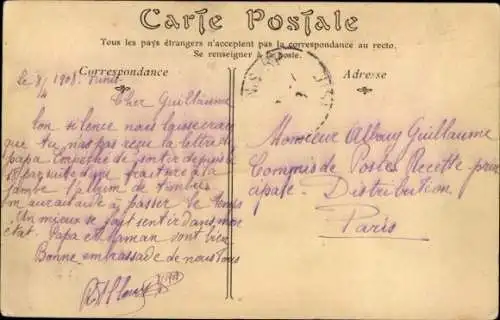 Carte Postale
Tous les pays étrangers n'acceptent pas la correspondance au recto.
Se renseigner à la poste.
Correspondance
Adresse
Le 8/4 1908.
Cher Guillaume
ton silence nous laisse
que tu n'as pas reçu la lettre de
Papa de sortir depuis le
à la
Jambe l'album de timbres
m aurait aidé à passer le temps
Un mieux se fait sentir dans mon
état. Papa et Maman sont bien
Bonne embrassade de nous tous
Monsieur Albouy Guillaume
Commis de Postes Recette prin
cipale. Distribution
Paris